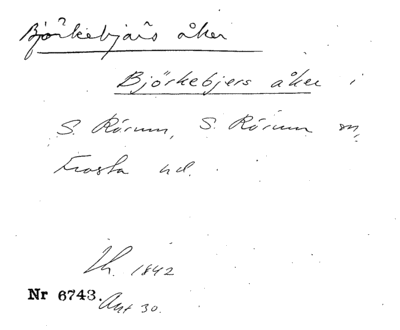 Björkebjärs åker
Björkebjers åker i
S. Rörum, S. Rörum sn,
Frosta hd.
Lh. 1842
Nr 6743. Akt 30.